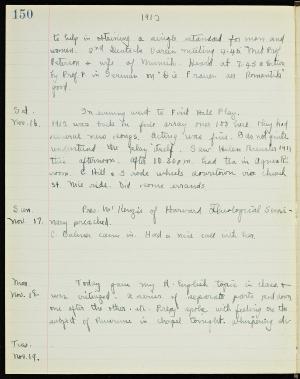 150
1912
to help in obtaining a single standard for men and
women. 2nd Deutsche Verein meeting 7.45. Met Prof
Peterson & wife of Munich. Heard at 7.45 a lecture
by Prof. P in German on "Die Frauen des
good.
Sat.
Nov. 16.
In evening went to Field Hall Play.
1912 was out in fine array over 100 and they had
several new songs. Acting was fine. Did not quite
understand the play itself. Saw Helen 1911
this afternoon. After 10.00 p.m. had tea in
room. C Hill & I rode wheels downtown via church
St. Nice ride. Did some errands.
Sun.
Nov. 17.
Pres. McKenzie of Harvard Theological Semi-
nary preached.
C Balmer came in. Had a nice call with her.
Mon
Nov. 18.
Today gave my English topic in class &
was criticized. A series of separate parts put down
one after the other, etc. Prexy spoke with feeling on the
subject of in chapel tonight. Whispering
Tues.
Nov. 19.